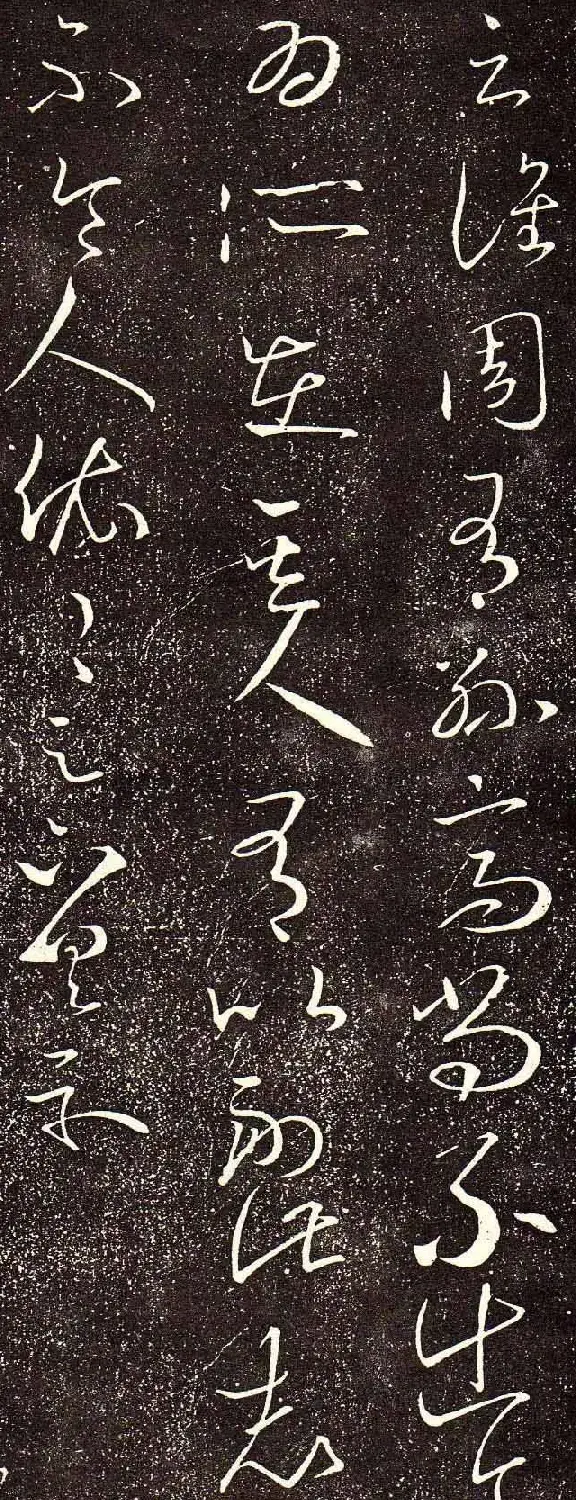 云谯周有孙高尚不出今
为所在其人有以副此志
不令人依依足下具示